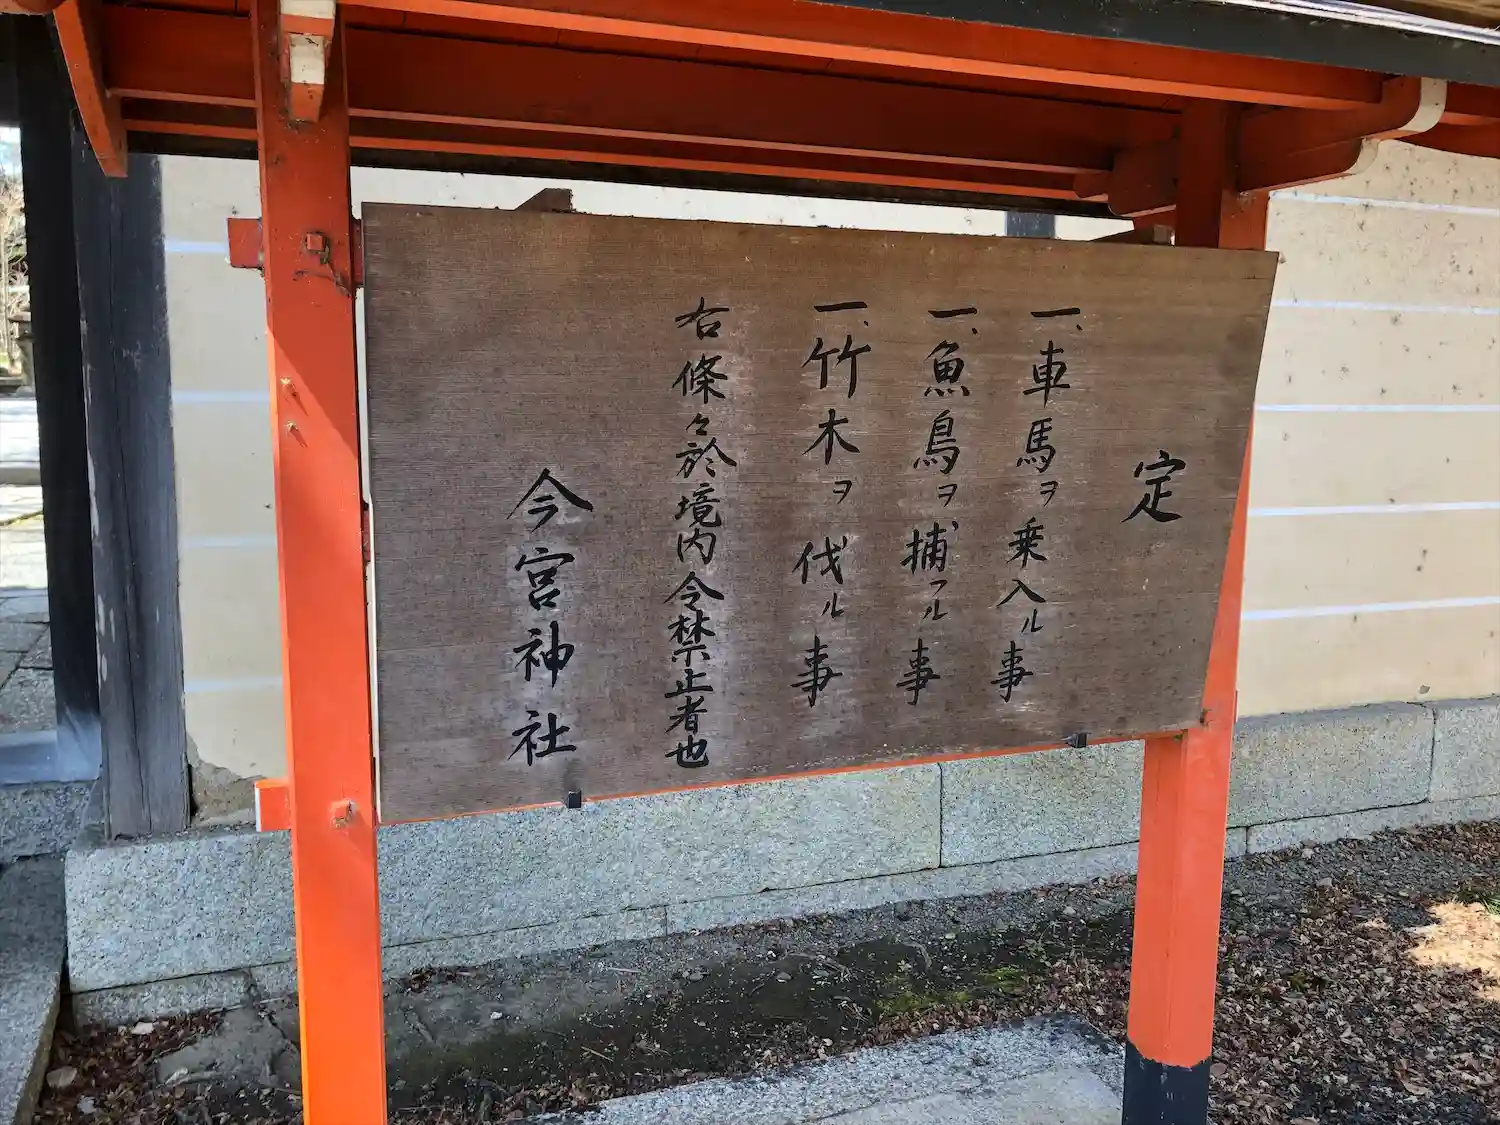 定
一、車馬ヲ乗入ル事
一、魚鳥ヲ捕フル事
一、竹木ヲ伐ル事
右條々於境内令禁止者也
今宮神社